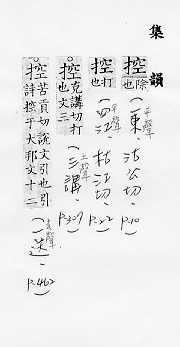 集韻
控 除也 (一東 平聲. 沽公切. P.10)
控 打也 (四江 平聲. 枯江切. P.22)
控 克講切打也文三 (三講 上聲. P.307)
控 苦貢切說文引也引詩控于大邦文十二 (一送 去聲. P.462)